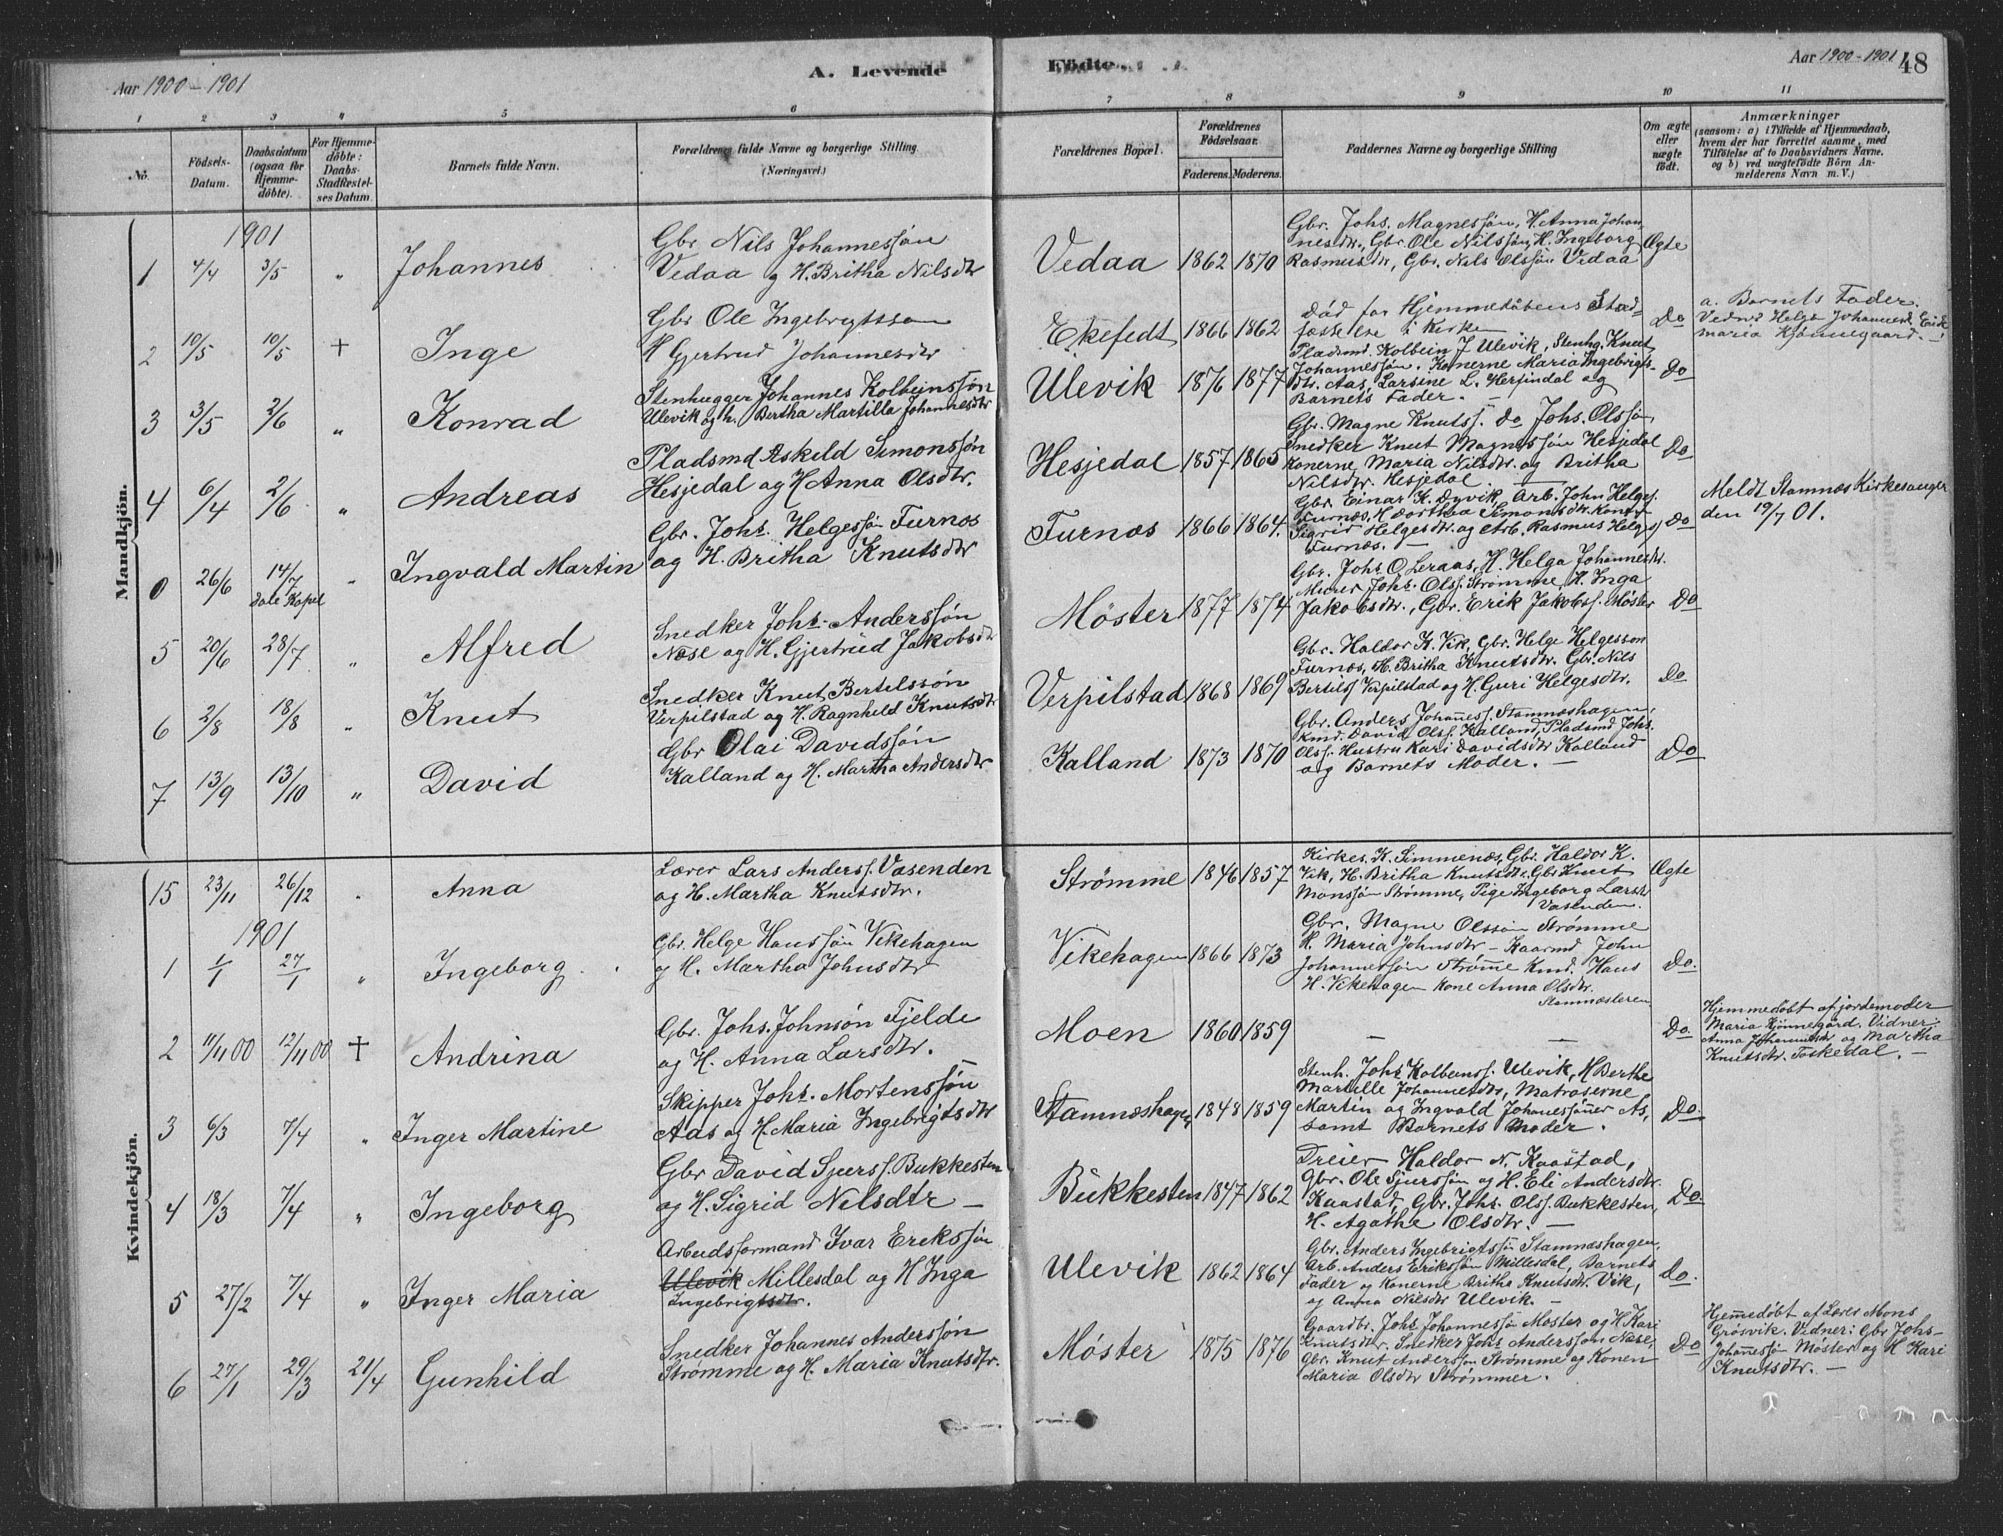 Aar 1900 – 1901
A. Levende
Födte.
Aar 1900-1901
48
1 2 3 4 5 6 7 8 9 10 11
No.
Födsels-Datum.
Daabsdatum (ogsaa for Hjemme-döbte).
For Hjemme-döbte: Daabs-Stadfæstelses Datum.
Barnets fulde Navn.
Forældrenes fulde Navne og borgerlige Stilling (Næringsvei.)
Forældrenes Bopæl.
Forældrenes Födselsaar.
Faderens.
Moderens.
Faddernes Navne og borgerlige Stilling
Om ægte eller uægte födt.
Anmærkninger
(saasom: a) i Tilfælde af Hjemmedaab, hvem der har forrettet samme, med Tilföielse af to Daabsvidners Navne, og b) ved uægtefödte Börn Anmelderens Navn m. V.)
Mandkjön.
1901
1 4/4 3/5 „ Johannes
Gbr Nils Johannessøn
Vedaa og H. Britha Nilsdtr
Vedaa 1862 1870
Gbr. Johs. Magnessøn, H. Anna Johan-
nesdtr., Gbr. Ole Nilssøn, H. Ingeborg
Rasmusdtr, Gbr. Nils Olssøn Vedaa
Ægte
2 10/5 10/5 + Inge
Gbr Ole Ingebrigtsson
H Gjertrud Johannesdtr
Ekefedt 1866 1862
Død før Hjemmedåbens Stad-
fæstelse i Kirken
Do
a. Barnets Fader.
Vidner Helge Johannesd.
Maria Kjønnegaard. –
3 3/5 2/6 „ Konrad
Stenhugger Johannes Kolbeinssøn
Ulevik og h. Bertha Martilla Johannesdtr
Ulevik 1876 1877
Pladsmd. Kolbein J Ulevik, Stenhg. Knut
Johannessøn. Konerne Maria Ingebrigts-
dtr. Aas, Larsine L. Herfindal og
Barnets Fader. –
Do
4 6/4 2/6 „ Andreas
Pladsmd Askild Simonssøn
Hesjedal og H Anna Olsdtr.
Hesjedal 1857 1865
Gbr. Magne Knutss. Do Johs. Olssøn,
Snedker Knut Magnessøn Hesjedal
Konerne Maria Nilsdtr. og Britha
Nilsdtr. Hesjedal. –
Do
0 26/6 14/7 Dale Kapel „ Ingvald Martin
Gbr. Johs. Helgessøn Furnæs
og H. Britha Knutsdtr
Furnæs 1866 1864.
Gbr. Einar K. Dyvik, Arb. John Helges.
Furnæs, H Dorthea Simonsdtr. Konen
Sigrid Helgesdtr. og Arb. Rasmus Helges.
Furnæs. –
Do
Meldt Stamnæs Kirkesanger
den 19/7 01.
5 20/6 28/7 „ Alfred
Snedker Johs. Anderssøn
Næse og H. Gjertrud Jakobsdtr
Møster 1877 1874
Gbr. Johs O. Leraas, H. Helga Johannesdtr.
Murer Johs. Olss. Strømme, H. Inga
Jakobsdtr., Gbr. Erik Jakobss. Møster
Do
6 2/8 18/8 „ Knut
Snedker Knut Bertelssøn
Verpilstad og H. Ragnhild Knutsdtr
Verpilstad 1868 1869
Gbr. Haldor K. Vik, Gbr. Helge Helgessøn
Furnæs, H. Britha Knutsdtr. Gbr. Nils
Bertilss Verpilstad og H. Guri Helgesdtr.
Do
7 13/9 13/10 „ David
Gbr Olai Davidssøn
Kalland og H. Martha Andersdtr
Kalland 1873 1870
Gbr. Anders Johanness. Stamneshagen,
Kmd. David Olss. Kalland, Pladsmd Johs.
Olss. Hustru Kari Davidsdtr Kalland
og Barnets Moder. –
Do
Kvindekjön.
15 23/11 26/12 „ Anna
Lærer Lars Anderss. Vasenden
og H. Martha Knutsdtr.
Strømme 1846 1857
Kirkes. K. Simmenæs, Gbr. Haldor K.
Vik, H. Britha Knutsdtr. Gbr Knut
Monssøn Strømme, Pige Ingeborg Larsd.
Vasenden.
Ægte
1901
1 1/1 27/1 „ Ingeborg
Gbr. Helge Hanssøn Vikehagen
og H. Martha Johnsdtr
Vikehagen 1866 1873
Gbr. Magne Olssøn Strømme
H. Maria Johnsdtr – Kaarmd John
Johannessøn Strømme Kmd. Hans
H. Vikehagen Kone Anna Olsdtr.
Stamnæsleren
Do.
2 11/11 00 12/11 00 + Andrina
Gbr. Johs. Johnsøn Fjelde
og H. Anna Larsdtr.
Moen 1860 1859
– –
Do
Hjemmedøbt af jordemoder
Maria Kjønnegård. Vidner:
Anna Johannesdtr og Martha
Knutsdtr. Toskedal. –
3 6/3 7/4 „ Inger Martine
Skipper Johs. Mortenssøn
Aas og H. Maria Ingebrigtsdtr
Stamnæshagen 1848 1859
Stenh. Johs Kolbenss. Ulevik, H Berthe
Martille Johannesdtr, Matroserne
Martin og Ingvald Johanessøner As,
samt Barnets Moder.
Do
4 18/3 7/4 „ Ingeborg
Gbr David Sjurss. Bukkesten
og H. Sigrid Nilsdtr –
Bukkesten 1847 1862
Dreier Haldor N. Kaastad,
Gbr. Ole Sjurssøn og H. Eli Andersdtr.
Kaastad, Gbr. Johs. Olss. Bukkesten,
H. Agathe Olsdtr. –
Do
5 27/2 7/4 „ Inger Maria
Arbeidsformand Ivar Erikssøn
Ulevik Millesdal og H Inga
Ingebrigtsdtr.
Ulevik 1862 1864
Gbr. Anders Ingebrigtssøn Stamnæshagen,
Arb. Anders Erikssøn Millesdal, Barnets
Fader og Konerne Britha Knutsdtr. Vik,
og Anna Nilsdtr Ulevik. –
Do.
6 27/1 29/3 21/4 Gunhild
Snedker Johannes Anderssøn
Strømme og H. Maria Knutsdtr.
Møster 1875 1876
Gaardbr. Johs Johannessøn Møster og H Kari
Knutsdtr, Snedker Johs Anderssøn Næse,
Gbr. Knut Anderssøn Strømme og Konen
Maria Olsdtr Strømmer.
Do
Hjemmedøbt af Lærer Mons
Grøsvik. Vidner: Gbr Johs
Johannessøn Møster og H Kari
Knutsdtr. –